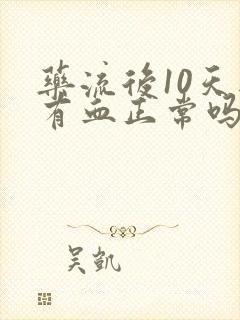 药流後10天
有血正常吗
吴凯